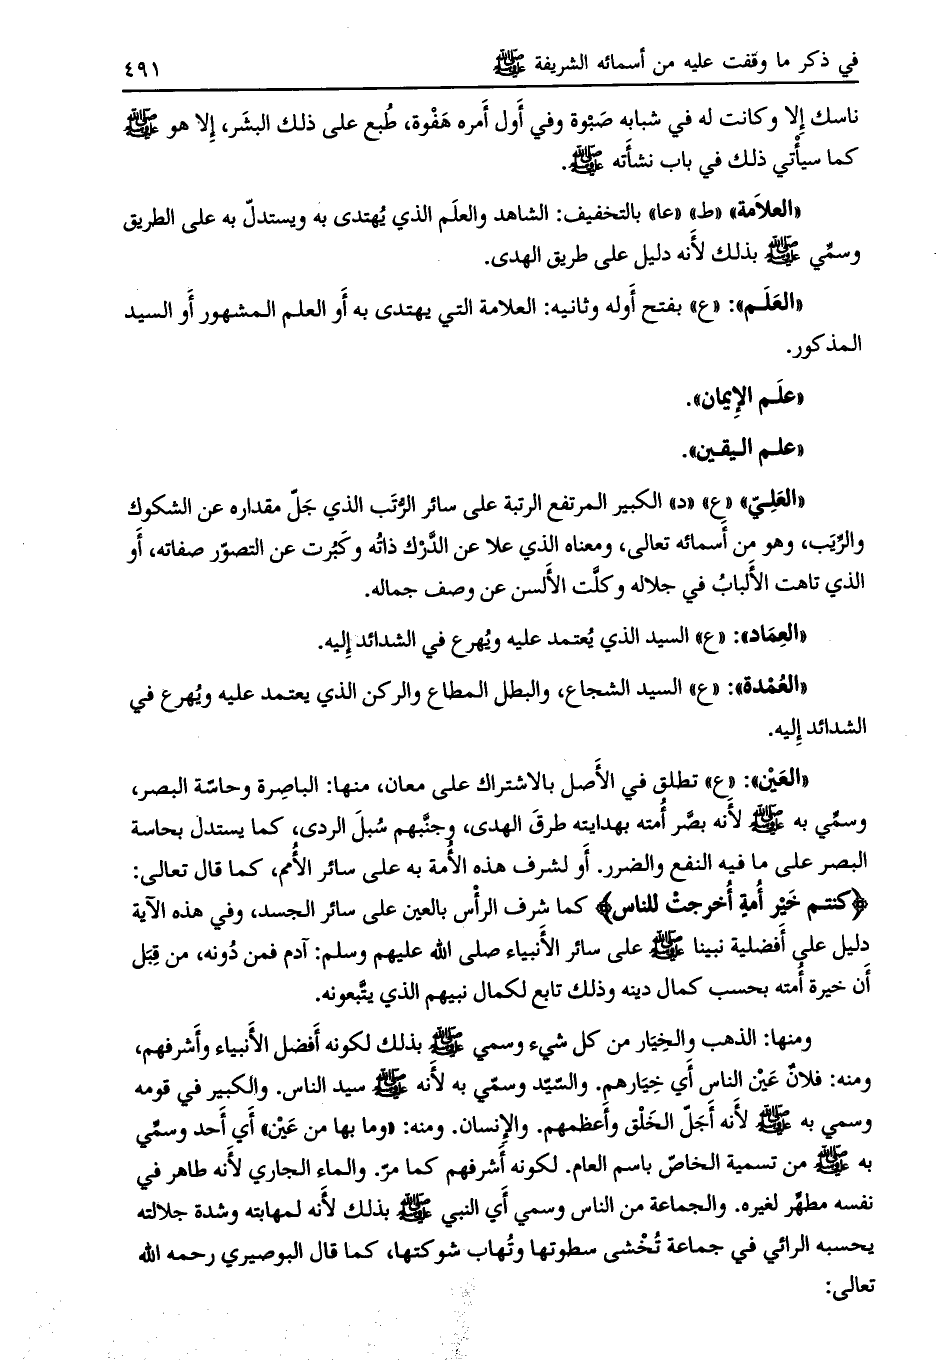 في ذكر ما وقفت عليه من أسمائه الشريفة ﷺ ٤٩١
ناسك إلا وكانت له في شبابه صَبْوة وفي أول أَمره هَفْوة، طُبع على ذلك البشَر، إِلا هو ﷺ
كما سيأْتي ذلك في باب نشأَته ﷺ.
«العلاَمة» «ط» «عا» بالتخفيف: الشاهد والعلَم الذي يُهتدى به ويستدلّ به على الطريق
وسمِّي ﷺ بذلك لأَنه دليل على طريق الهدى.
«العَلَم»: «ع» بفتح أَوله وثانيه: العلامة التي يهتدى به أَو العلم المشهور أَو السيد
المذكور.
«علَم الإِيمان».
«علم اليقين».
«العَلِيّ» «ع» «د» الكبير المرتفع الرتبة على سائر الرُّتَب الذي جَلّ مقداره عن الشكوك
والرِّيَب، وهو من أَسمائه تعالى، ومعناه الذي علا عن الدَّرْك ذاتُه وكَبُرت عن التصوّر صفاته، أَو
الذي تاهت الأَلبابُ في جلاله وكلَّت الأَلسن عن وصف جماله.
«العِمَاد»: «ع» السيد الذي يُعتمد عليه ويُهرع في الشدائد إِليه.
«العُمْدة»: «ع» السيد الشجاع، والبطل المطاع والركن الذي يعتمد عليه ويُهرع في
الشدائد إِليه.
«العَيْن»: «ع» تطلق في الأَصل بالاشتراك على معان، منها: الباصِرة وحاسّة البصر،
وسمِّي به ﷺ لأَنه بصَّر أُمته بهدايته طرقَ الهدى، وجنَّبهم سُبلَ الردى، كما يستدل بحاسة
البصر على ما فيه النفع والضرر. أَو لشرف هذه الأُمة به على سائر الأُمم، كما قال تعالى:
﴿كنتم خَيْر أُمةٍ أُخرجتْ للناس﴾ كما شرف الرأْس بالعين على سائر الجسد، وفي هذه الآية
دليل على أَفضلية نبينا ﷺ على سائر الأَنبياء صلى الله عليهم وسلم: آدم فمن دُونه، من قِبَل
أَن خيرة أُمته بحسب كمال دينه وذلك تابع لكمال نبيهم الذي يتَّبعونه.
ومنها: الذهب والخِيَار من كل شيء وسمي ﷺ بذلك لكونه أَفضل الأَنبياء وأَشرفهم،
ومنه: فلانٌ عَيْن الناس أَي خِيَارهم. والسَّيِّد وسمّي به لأَنه ﷺ سيد الناس. والكبير في قومه
وسمي به ﷺ لأَنه أَجَلّ الخَلْق وأَعظمهم. والإِنسان. ومنه: «وما بها من عَيْن» أَي أَحد وسمِّي
به ﷺ من تسمية الخاصّ باسم العام. لكونه أَشرفهم كما مرّ. والماء الجاري لأَنه طاهر في
نفسه مطهِّر لغيره. والجماعة من الناس وسمي أَي النبي ﷺ بذلك لأَنه لمهابته وشدة جلالته
يحسبه الرائي في جماعة تُخْشى سطوتها وتُهاب شوكتها، كما قال البوصيري رحمه الله
تعالى: